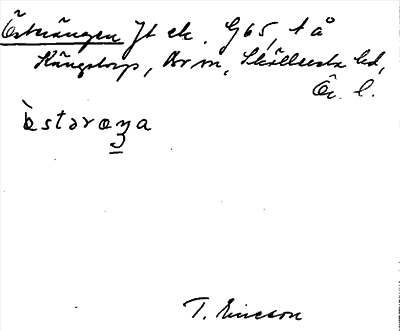 Österängen Jt ek. G65, t å
Hängstorp, Ör m, Skölleersta hd,
Ör. l.
östəræŋa
T. Ericson